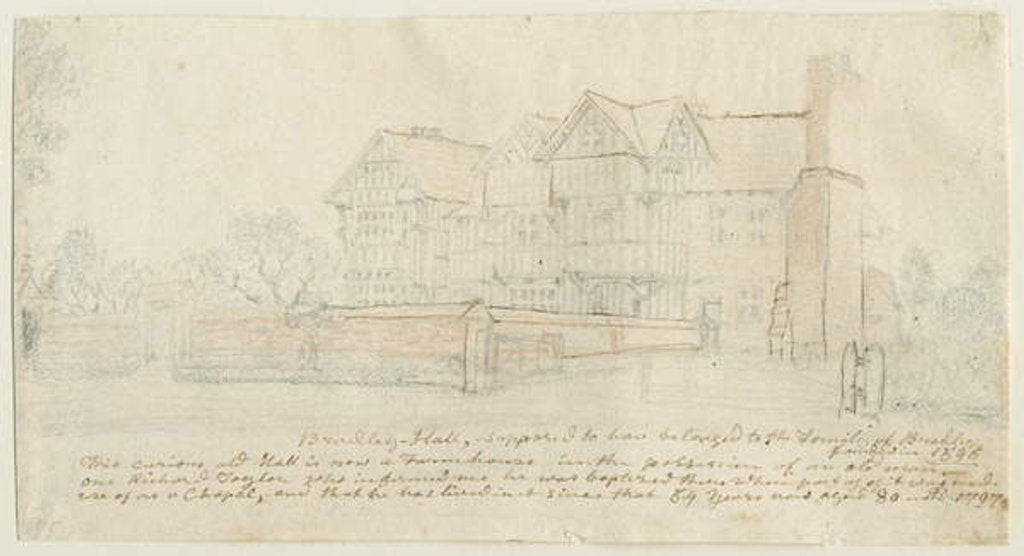 Bradley-Hall, supposed to have belonged to the Family of
1596
This curious old Hall is now a Farmhouse in the possession of an old man
one Richard Taylor who informed me he was baptized there when part of it was made
use of as a Chapel, and that he has lived in it since that 59 Years now aged 80 1797